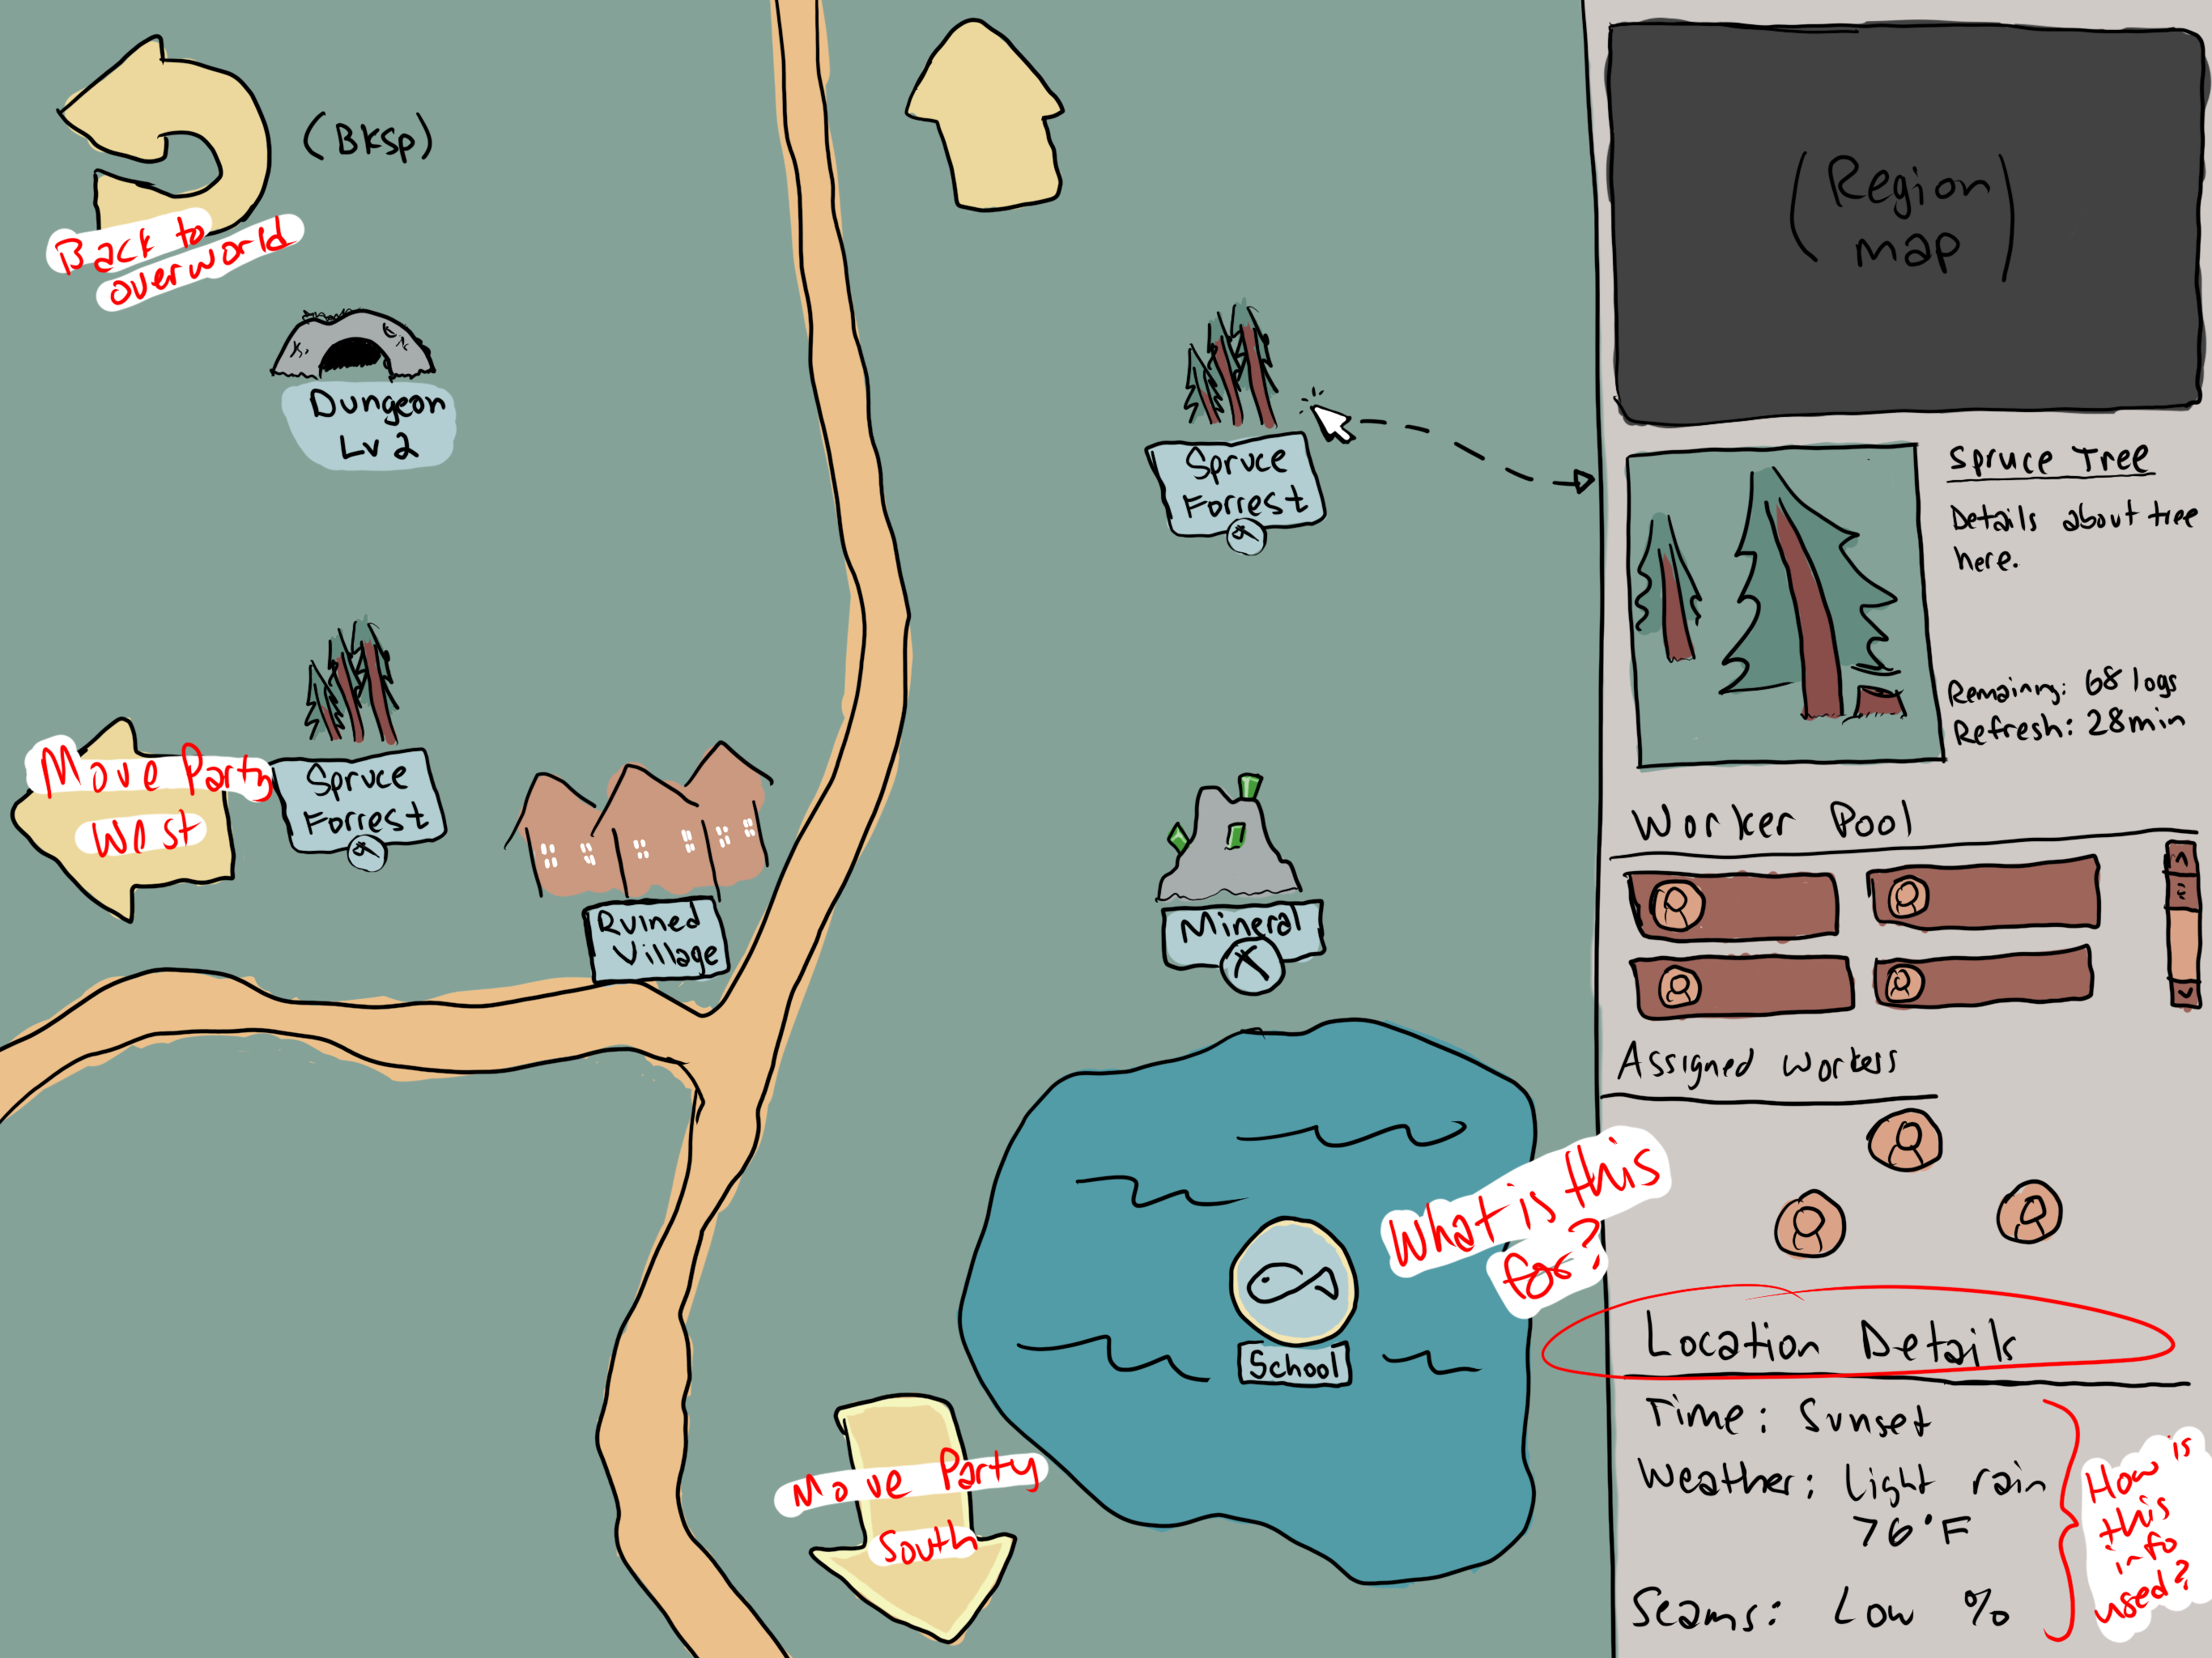 (Bksp)
Back to
overworld
Dungeon
Lv 2
Spruce
Forrest
Move Party
West
Spruce
Forrest
Ruined
Village
Mineral
School
Move Party
South
(Region
map)
Spruce Tree
Details about tree
here.
Remaining: 68 logs
Refresh: 28min
Worker Pool
Assigned Workers
What is this
for?
Location Details
Time: Sunset
Weather: Light rain
76°F
Seams: Low %
How is
this
info
used?